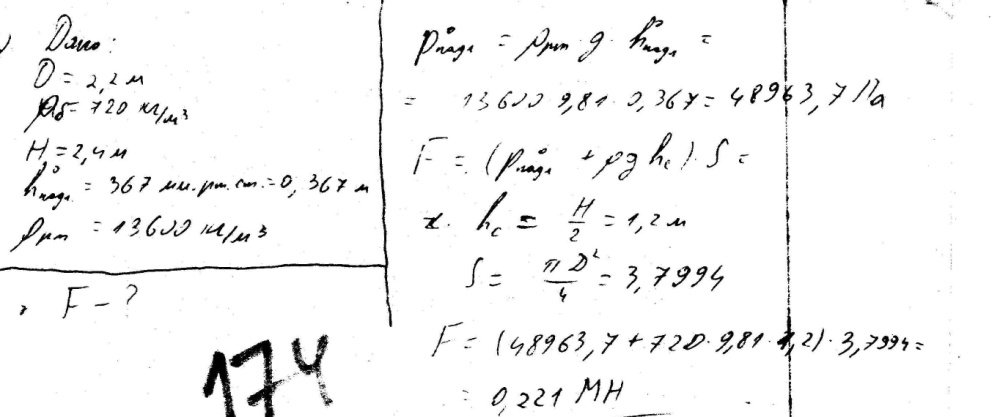 Дано:
D = 2,2 м
ρб = 720 кг/м³
H = 2,4 м
h°надл = 367 мм.рт.ст. = 0,367 м
ρрт = 13600 кг/м³
F - ?
174
p°надл = ρрт · g · h°надл =
= 13600 · 9,81 · 0,367 = 48963,7 Па
F = (p°надл + ρ g hc) · S =
hc = H/2 = 1,2 м
S = πD²/4 = 3,7994
F = (48963,7 + 720 · 9,81 · 1,2) · 3,7994 =
= 0,221 МН